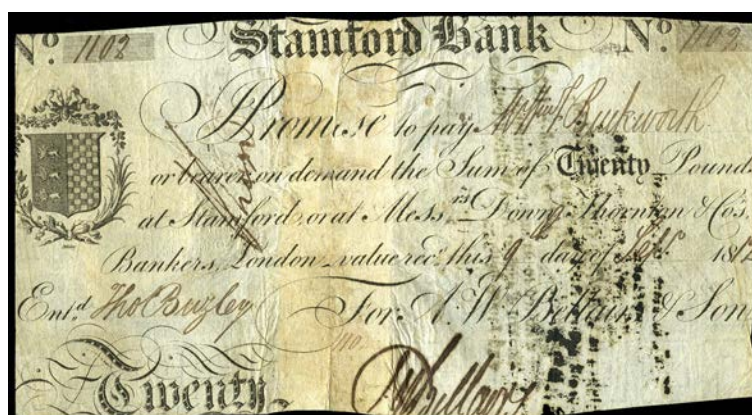 No. 1102 Stamford Bank No. 1102
Promise to pay Buckworth
or bearer on demand the Sum of Twenty Pound
at Stamford, or at Messrs. Down, Thornton & Co's
Bankers, London_value recd. this 9 day of Sept 1812
Entd. Thos Buzley For A. W. Bellairs & Son
Twenty Bellairs